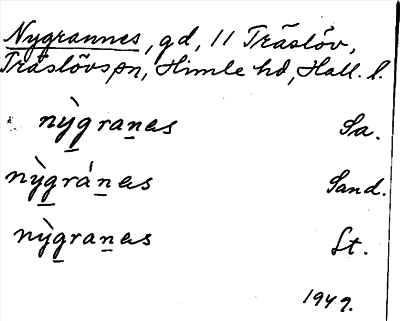 Nygrannes, gd, 11 Träslöv,
Träslövs sn, Himle hd, Hall. l.
nỳgranas Sa.
nỳgránas Sand.
nỳgranas St.
1949.